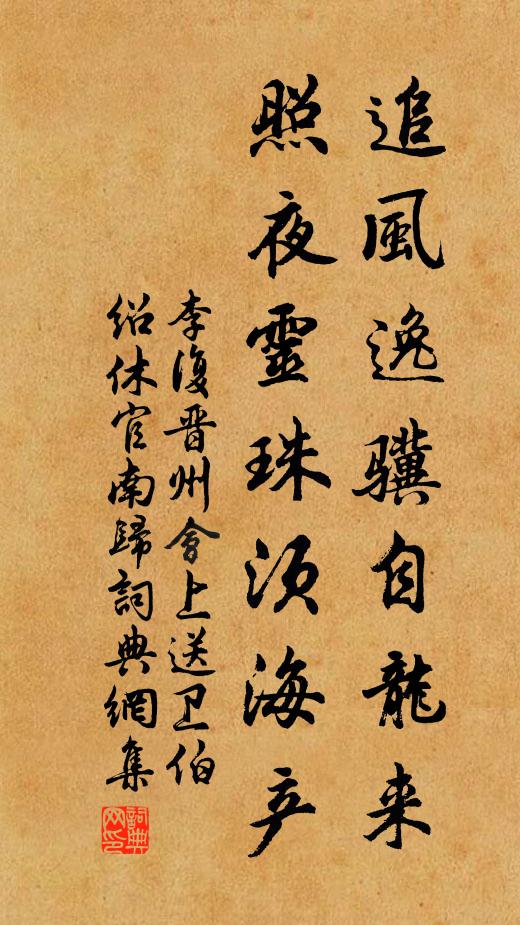 追風逸驥自龍来
照夜靈珠須海产
李復晋州會上送卫伯
绍休官南歸詞典網集
詞典网印